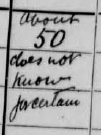 About
50
does not
know
for certain